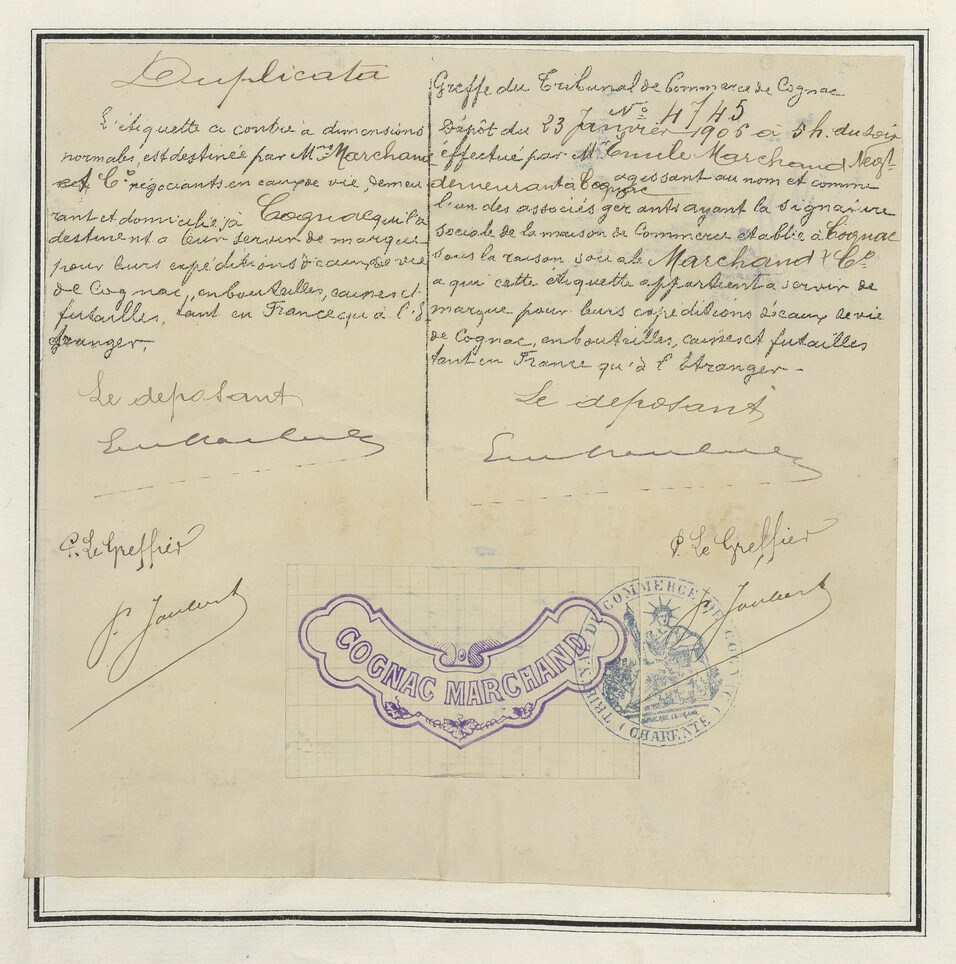 Duplicata
L'étiquette ci contre à dimensions
normales, est destinée par Mrs Marchand
et Co négociants en eaux de vie, demeu
rant et domicilié à Cognac qu'ils
destinent à leur servir de marque
pour leurs expéditions d'eaux de vie
de Cognac, en bouteilles, caisses et
futailles, tant en France qu'à l'É-
tranger.
Le deposant
P. Le Greffier
P. Joubert
Greffe du Tribunal de Commerce de Cognac
No 4745
Dépôt du 23 Janvier 1906 à 5 h. du soir
effectué par Mr Emile Marchand Negt
demeurant à Cognac agissant au nom et comme
l'un des associés gérants ayant la signature
sociale de la maison de Commerce établie à Cognac
sous la raison sociale Marchand & Co
a qui cette étiquette appartient à servir de
marque pour leurs expéditions d'eaux de vie
de Cognac, en bouteilles, caisses et futailles
tant en France qu'à l'Étranger -
Le deposant
P. Le Greffier
P. Joubert
COGNAC MARCHAND
TRIBUNAL DE COMMERCE DE COGNAC
(CHARENTE)